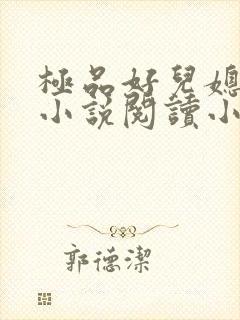 極品好兒媳
小說閱讀小
郭德潔